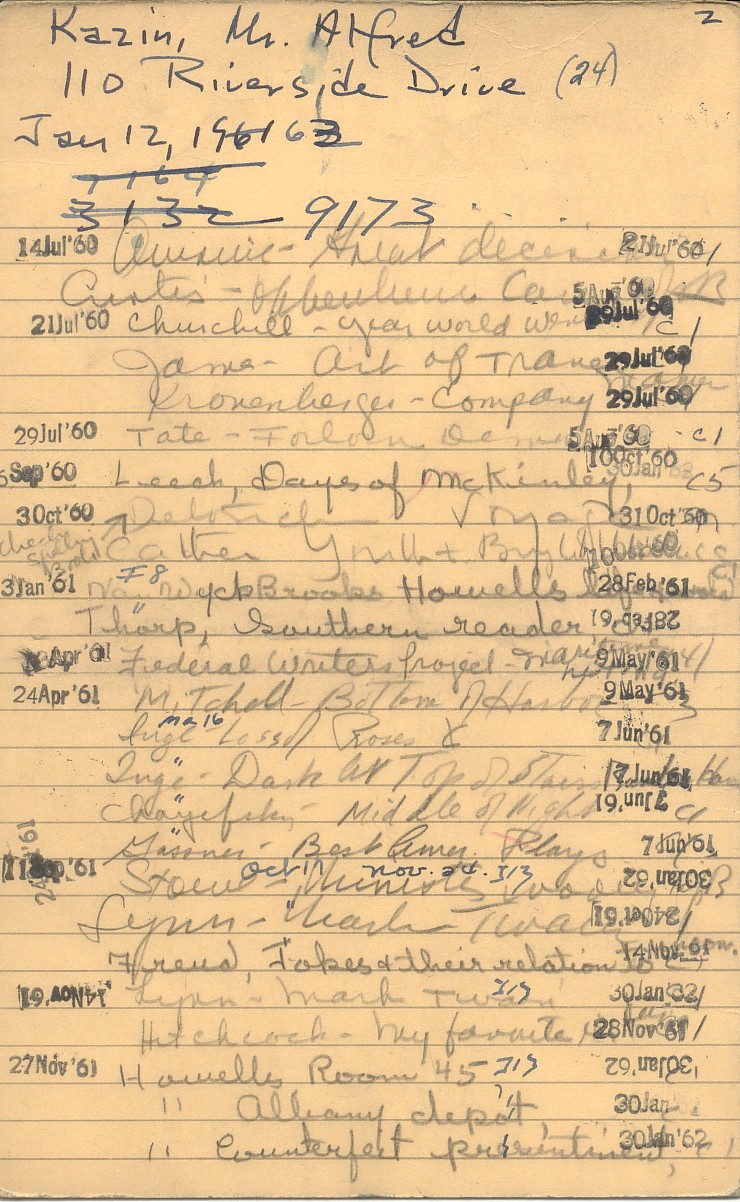 2
Kazin, Mr. Alfred
110 Riverside Drive (24)
Jan 12, 1961 63
7164
3132 9173
14Jul'60 - Great decision 21Jul'60 / 1
Curtis - Oppenheimer Case 5Aug'60 RB
21Jul'60 Churchill - year world 29Jul'60 c 1
James - Art of Travel 29Jul'60
Kronenberger - Company 29Jul'60
29Jul'60 Tate - Forlorn Demon 5Aug'60 c1
10Oct'60
Sep'60 Leech, Days of McKinley, 30Jan'62 c5
3Oct'60 31Oct'60
check spelling
Cather Youth + Bright Medusa 10Oct'60
3Jan'61 #8 Van Wyck Brooks Howells 28Feb'61
Thorp, Southern reader 28Feb'61
Apr'61 Federal Writers Project - 9May'61
24Apr'61 Mitchell - Bottom of Harbor 9May'61 3
Ma 16
Inge Loss of Roses 7Jun'61
Inge - Dark At Top of Stairs 7Jun'61
Chayefsky - Middle of Night 7Jun'61 c1
Gassner - Best Amer. Plays 7Jun'61
11Sep'61 Oct 17 Nov. 24. J13
Stowe - Minister's Wooing 30Jan'62 B
Lynn - Mark Twain 24Oct'61
Freud, Jokes & their relation to 14Nov.61
14Nov'61 Lynn - Mark Twain J19 30Jan'62 / 1
Hitchcock - My favorite 28Nov'61 / 1
27Nov'61 Howells Room 45 J19 30Jan'62
" Albany depot, 30Jan
" Counterfeit presentment, 30Jan'62 c1